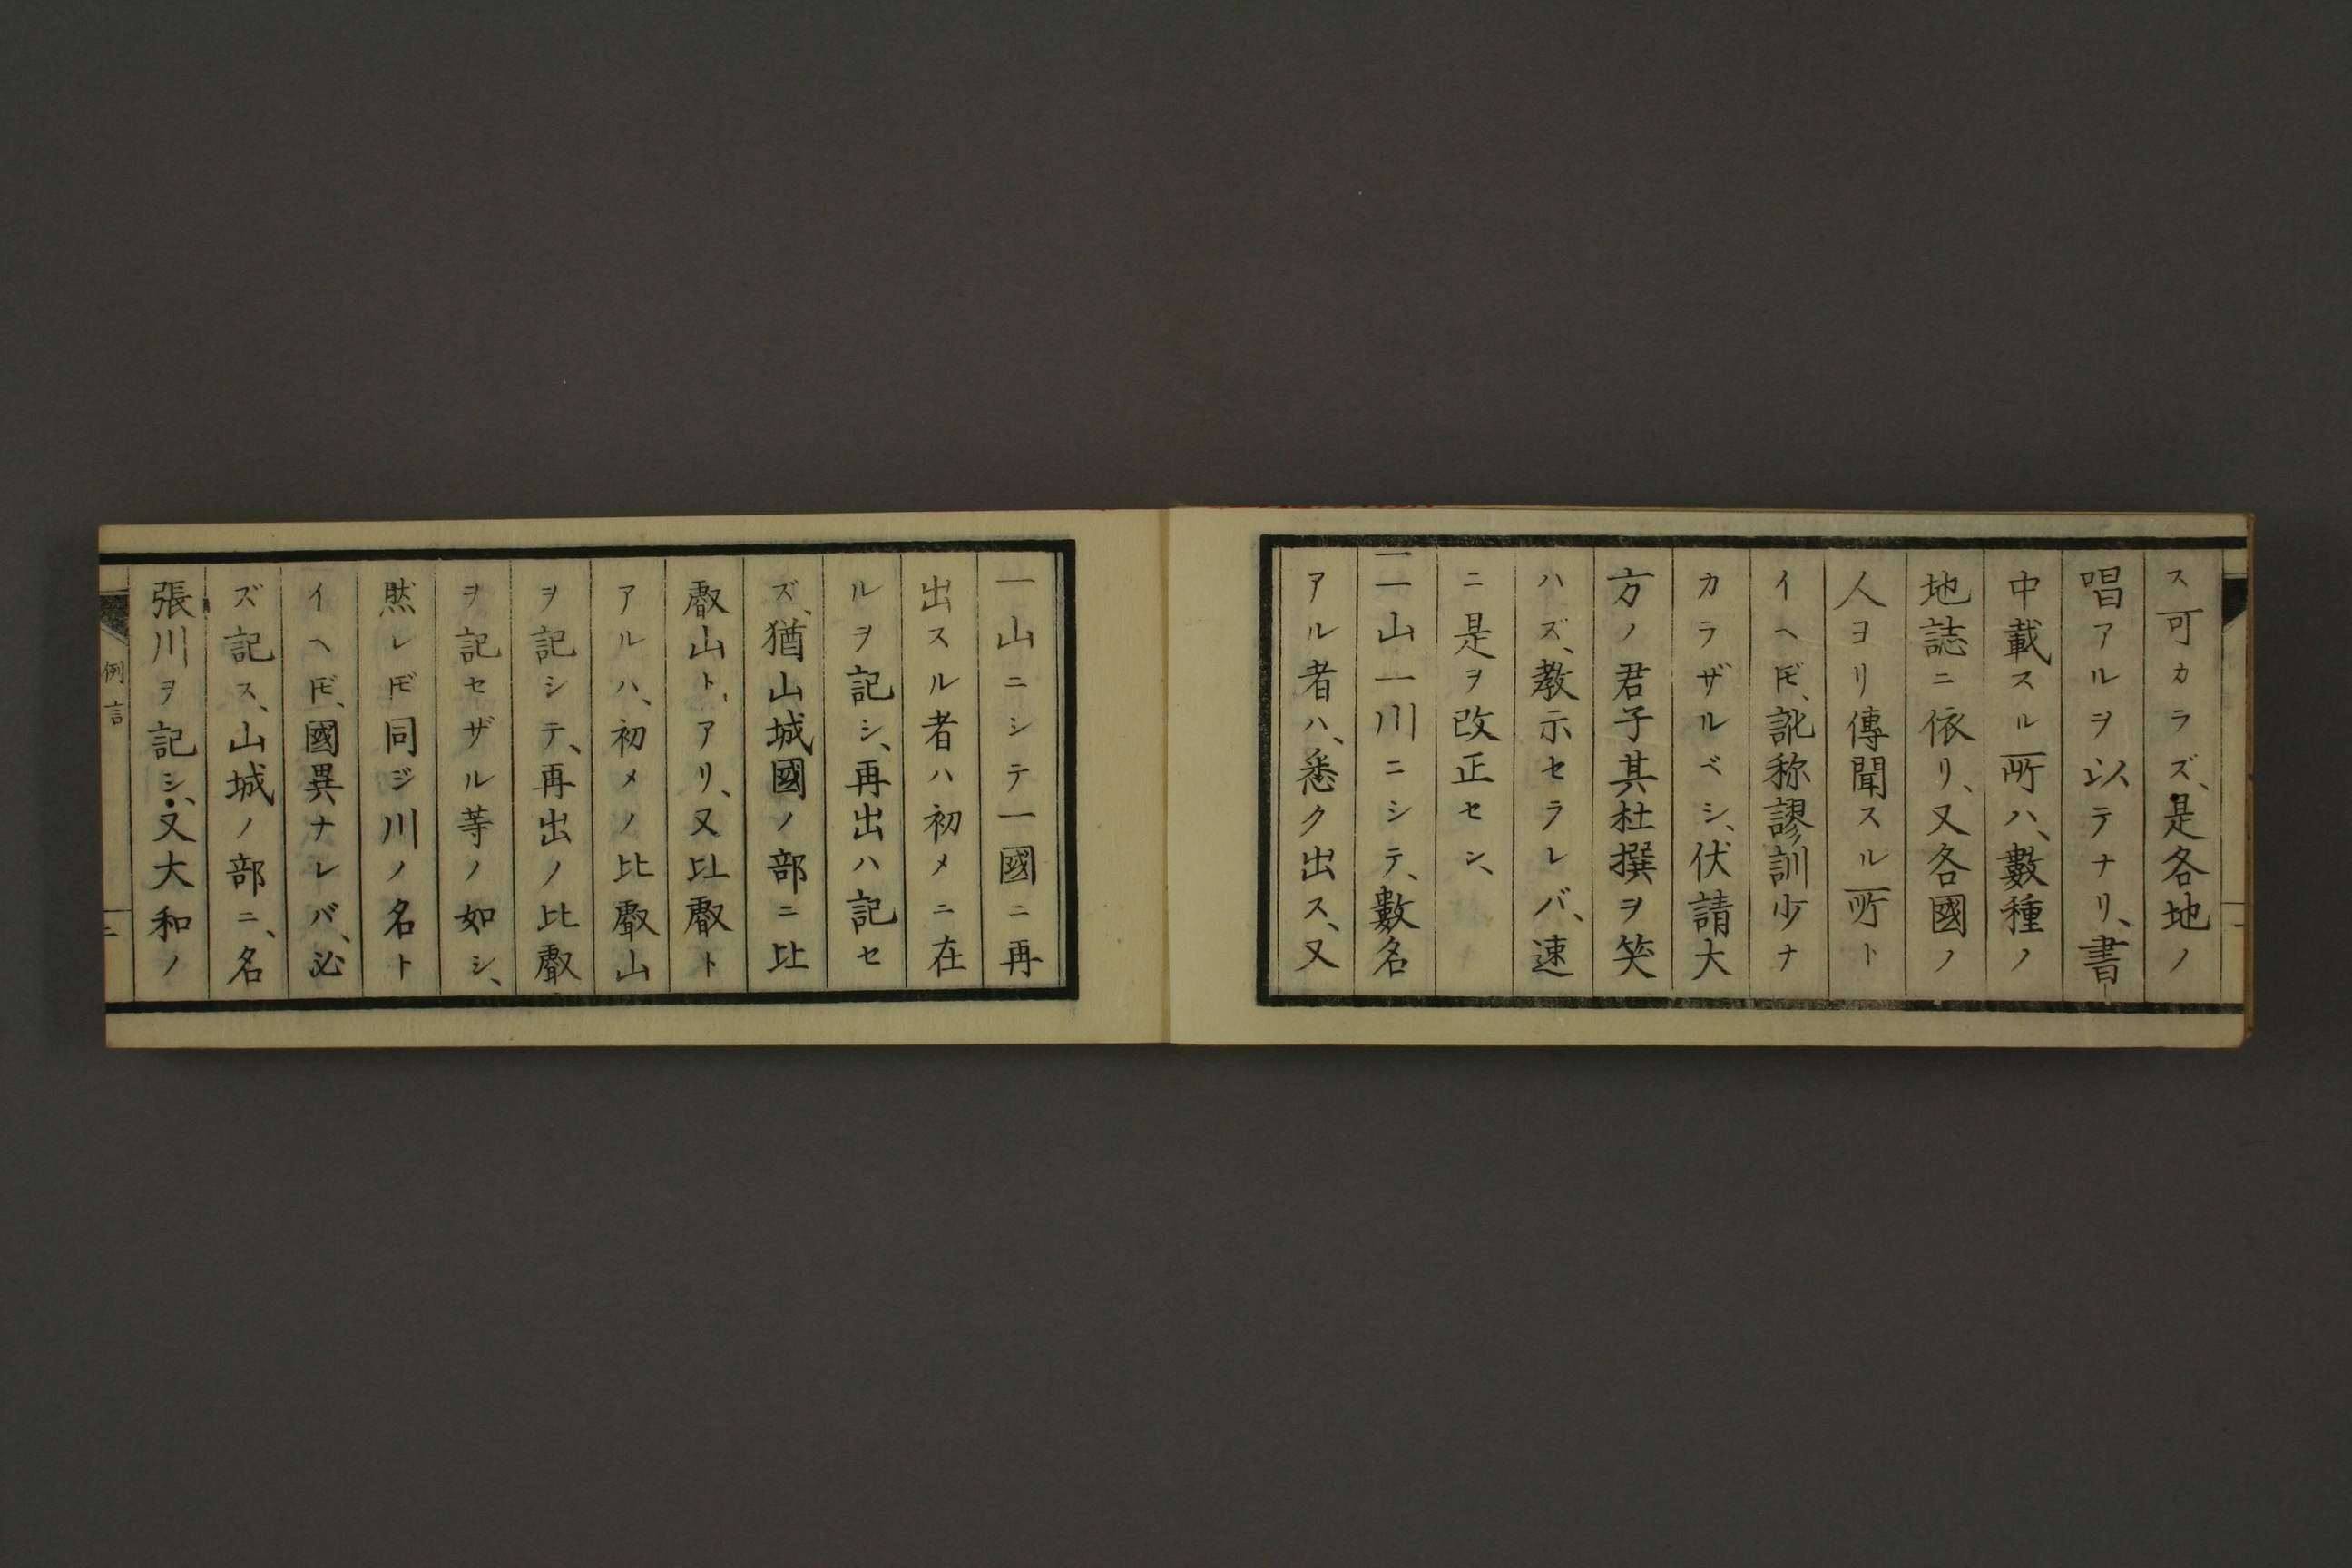 ス可カラズ、是各地ノ
唱アルヲ以テナリ、書
中載スル所ハ、數種ノ
地誌ニ依リ、又各國ノ
人ヨリ傳聞スル所ト
イヘ𪜈、訛称謬訓少ナ
カラザルベシ、伏請大
方ノ君子其杜撰ヲ笑
ハズ、教示セラレバ、速
ニ是ヲ改正セン、
一一山一川ニシテ、數名
アル者ハ、悉ク出ス、又
一山ニシテ一國ニ再
出スル者ハ初メニ在
ルヲ記シ、再出ハ記セ
ズ、猶山城國ノ部ニ比
叡山ト、アリ、又比叡ト
アルハ、初メノ比叡山
ヲ記シテ、再出ノ比叡
ヲ記セザル等ノ如シ、
然レ𪜈同ジ川ノ名ト
イヘ𪜈、國異ナレバ、必
ズ記ス、山城ノ部ニ、名
張川ヲ記シ、又大和ノ
例言
二